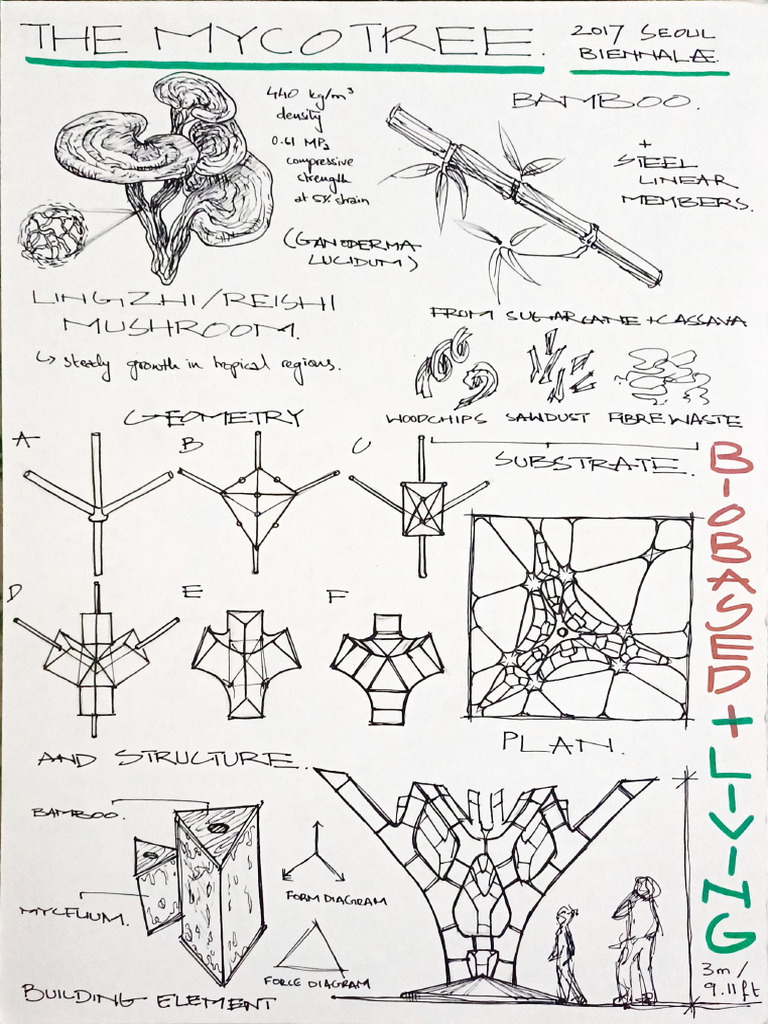 THE MYCOTREE.
2017 SEOUL
BIENNALÆ.
440 kg/m³
density
0.61 MPa
compressive
strength
at 5% strain
(GANODERMA
LUCIDUM)
BAMBOO.
+
STEEL
LINEAR
MEMBERS.
LINGZHI/REISHI
MUSHROOM.
↳ steady growth in tropical regions.
FROM SUGARCANE + CASSAVA
WOODCHIPS SAWDUST FIBRE WASTE
SUBSTRATE.
GEOMETRY
A B C
D E F
AND STRUCTURE.
PLAN.
BIOBASED + LIVING
BAMBOO.
MYCELIUM.
BUILDING ELEMENT
FORM DIAGRAM
FORCE DIAGRAM
3m/
9.11ft